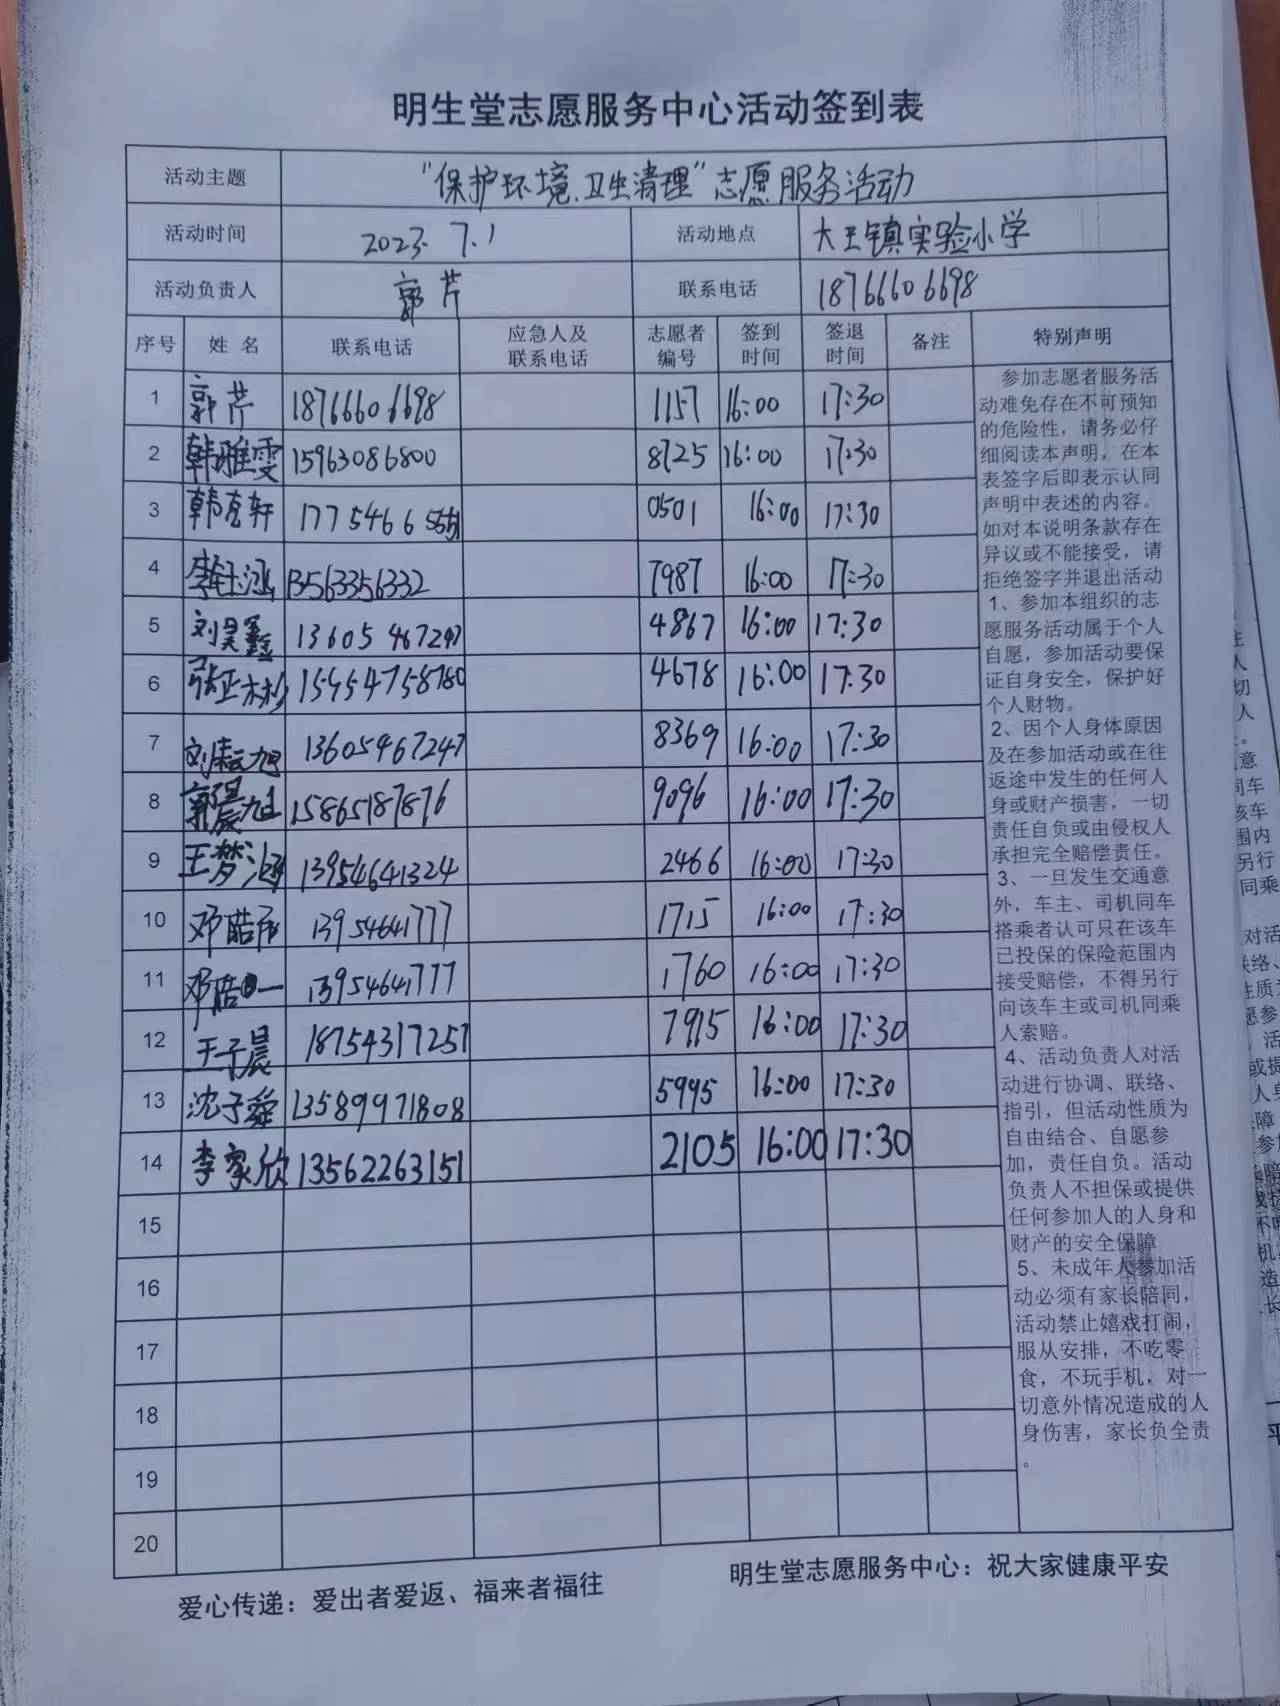 明生堂志愿服务中心活动签到表
活动主题 “保护环境、卫生清理”志愿服务活动
活动时间 2023.7.1 活动地点 大王镇实验小学
活动负责人 郭芹 联系电话 18766606698
序号 姓名 联系电话 应急人及联系电话 志愿者编号 签到时间 签退时间 备注 特别声明
1 郭芹 18766606698 1157 16:00 17:30
2 韩雅雯 15963086800 8725 16:00 17:30
3 韩亮轩 0501 16:00 17:30
4 13563356332 7987 16:00 17:30
5 刘昊鑫 13605467247 4867 16:00 17:30
6 张正彬 4678 16:00 17:30
7 刘耘旭 13605467247 8369 16:00 17:30
8 郭晨旭 15865187876 9096 16:00 17:30
9 王梦涵 13954641324 2466 16:00 17:30
10 邓皓 13954641777 1715 16:00 17:30
11 邓皓一 13954641777 1760 16:00 17:30
12 王子晨 18754317257 7915 16:00 17:30
13 沈子舜 13589971808 5995 16:00 17:30
14 李家欣 13562263151 2105 16:00 17:30
15
16
17
18
19
20
参加志愿者服务活
动难免存在不可预知
的危险性，请务必仔
细阅读本声明，在本
表签字后即表示认同
声明中表述的内容。
如对本说明条款存在
异议或不能接受，请
拒绝签字并退出活动
1、参加本组织的志
愿服务活动属于个人
自愿，参加活动要保
证自身安全，保护好
个人财物。
2、因个人身体原因
及在参加活动或在往
返途中发生的任何人
身或财产损害，一切
责任自负或由侵权人
承担完全赔偿责任。
3、一旦发生交通意
外，车主、司机同车
搭乘者认可只在该车
已投保的保险范围内
接受赔偿，不得另行
向该车主或司机同乘
人索赔。
4、活动负责人对活
动进行协调、联络、
指引，但活动性质为
自由结合、自愿参
加，责任自负。活动
负责人不担保或提供
任何参加人的人身和
财产的安全保障
5、未成年人参加活
动必须有家长陪同，
活动禁止嬉戏打闹，
服从安排，不吃零
食，不玩手机，对一
切意外情况造成的人
身伤害，家长负全责
。
爱心传递：爱出者爱返、福来者福往
明生堂志愿服务中心：祝大家健康平安